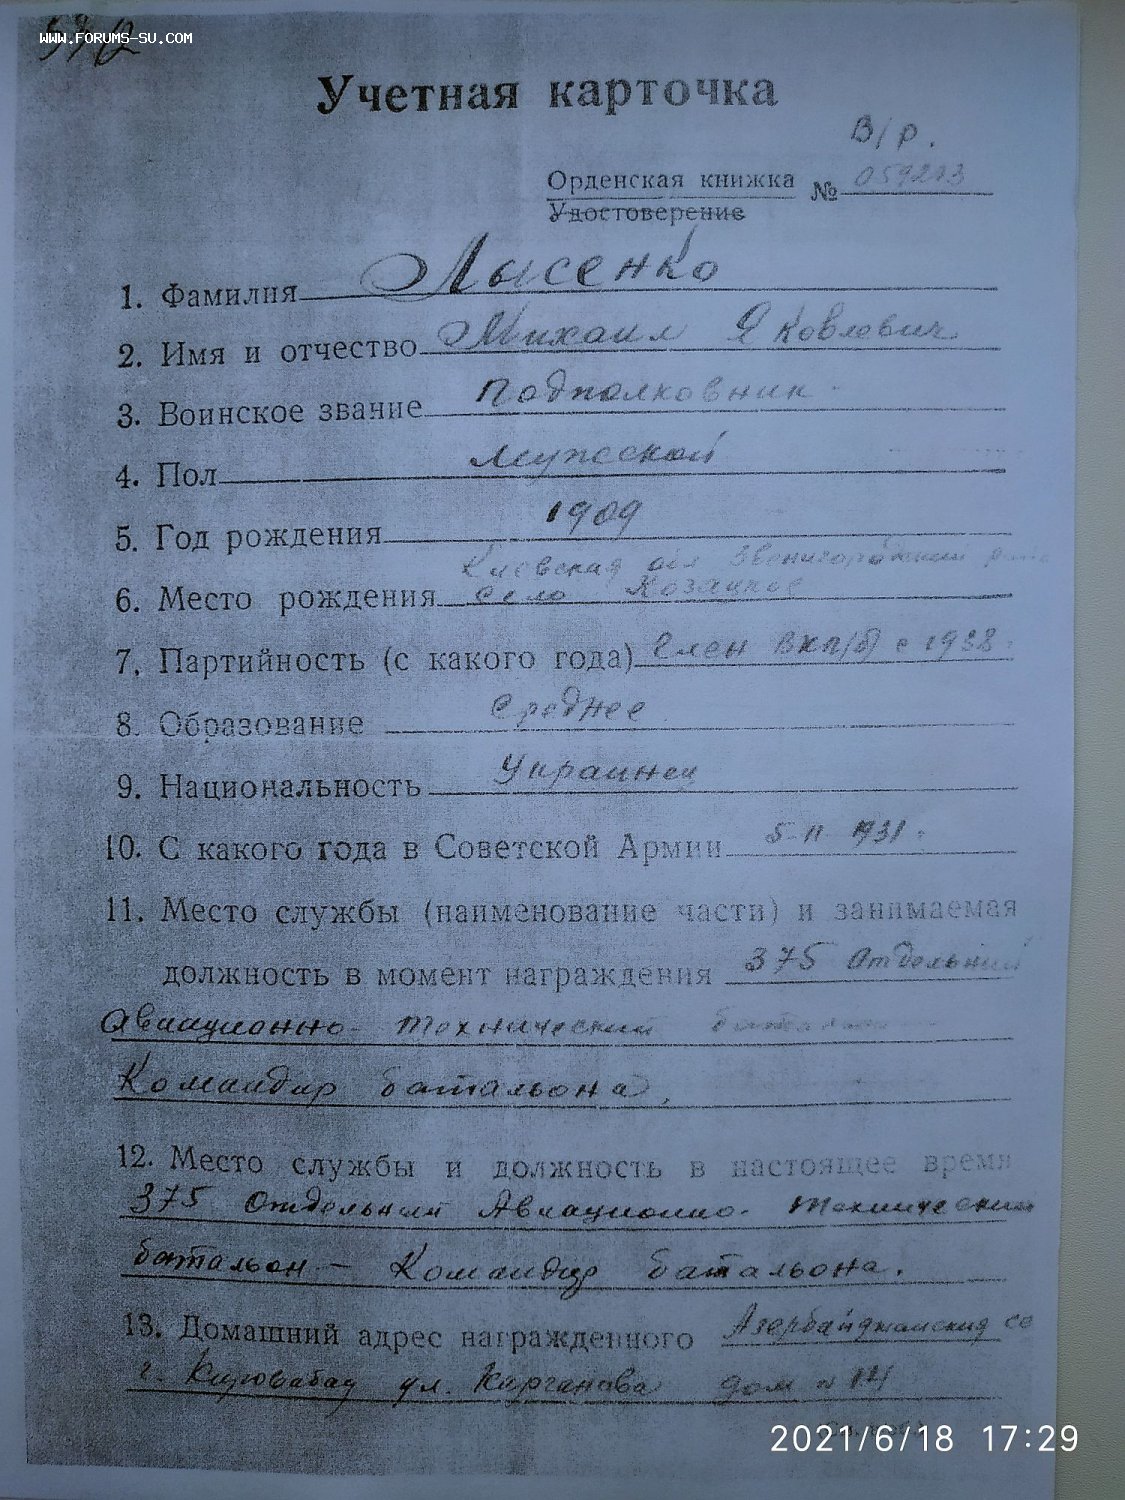 www.forums-su.com
Учетная карточка
В/р.
Орденская книжка № 059213
Удостоверение
1. Фамилия Лысенко
2. Имя и отчество Михаил Яковлевич
3. Воинское звание Подполковник
4. Пол мужской
5. Год рождения 1909
Киевская обл Звенигородский
6. Место рождения село Козацкое
7. Партийность (с какого года) Член ВКП(б) с 1938
8. Образование Среднее
9. Национальность Украинец
10. С какого года в Советской Армии 5-11 1931
11. Место службы (наименование части) и занимаемая
должность в момент награждения 375 Отдельный
Авиационно-технический батальон
Командир батальона,
12. Место службы и должность в настоящее время
375 Отдельный Авиационно-технический
батальон - Командир батальона.
13. Домашний адрес награжденного Азербайджанская сс
г. Кировабад ул. дом № 14
2021/6/18 17:29